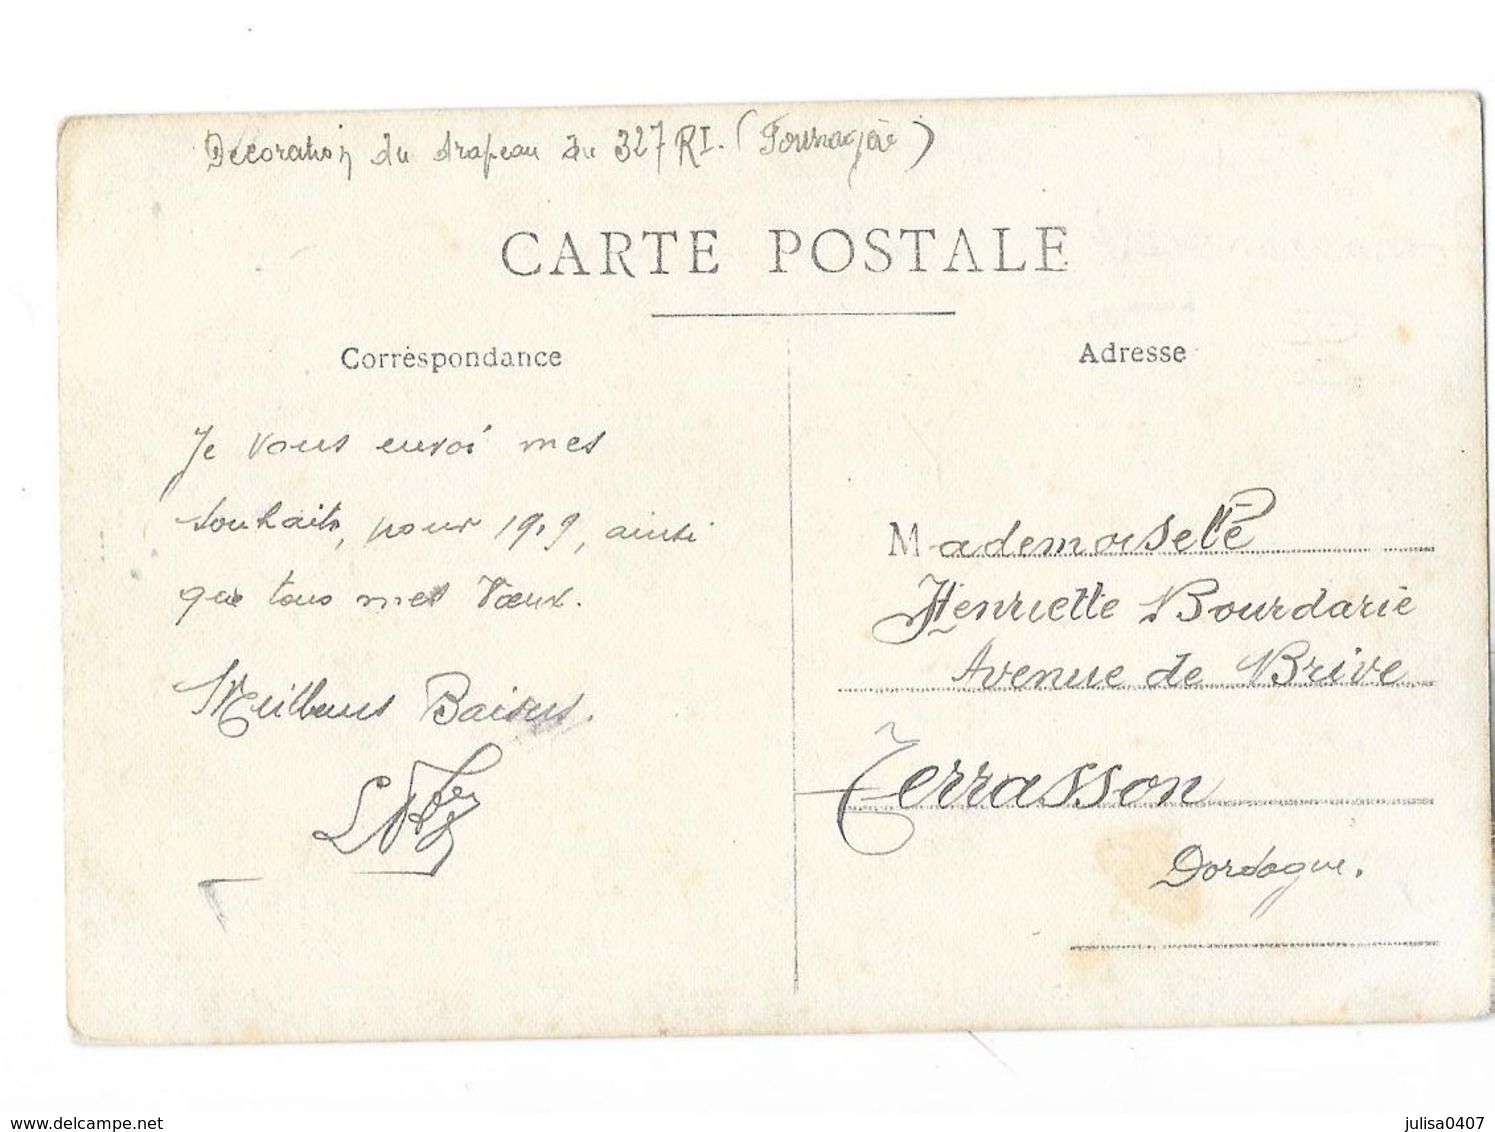 Décoration du drapeau du 327 RI. (Fourragère)
CARTE POSTALE
Correspondance
Adresse
Je vous envoi mes
souhaits, pour 1919, ainsi
que tous mes Vœux.
Meilleurs Baisers.
Mademoiselle
Henriette Bourdarie
Avenue de Brive
Terrasson
Dordogne.
www.delcampe.net
julisa0407